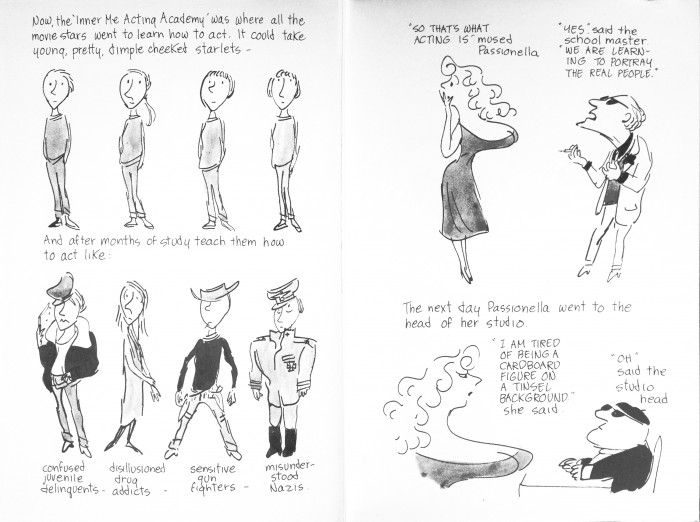 Now, the 'Inner Me Acting Academy' was where all the
movie stars went to learn how to act. It could take
young, pretty, dimple cheeked starlets -
And after months of study teach them how
to act like:
confused
juvenile
delinquents -
disillusioned
drug
addicts -
sensitive
gun
fighters -
misunder-
stood
Nazis.
"SO THAT'S WHAT
ACTING IS" mused
Passionella
"YES", said the
school master.
"WE ARE LEARN-
ING TO PORTRAY
THE REAL PEOPLE."
The next day Passionella went to the
head of her studio.
"I AM TIRED
OF BEING A
CARDBOARD
FIGURE ON
A TINSEL
BACKGROUND"
she said.
"OH"
said the
studio
head